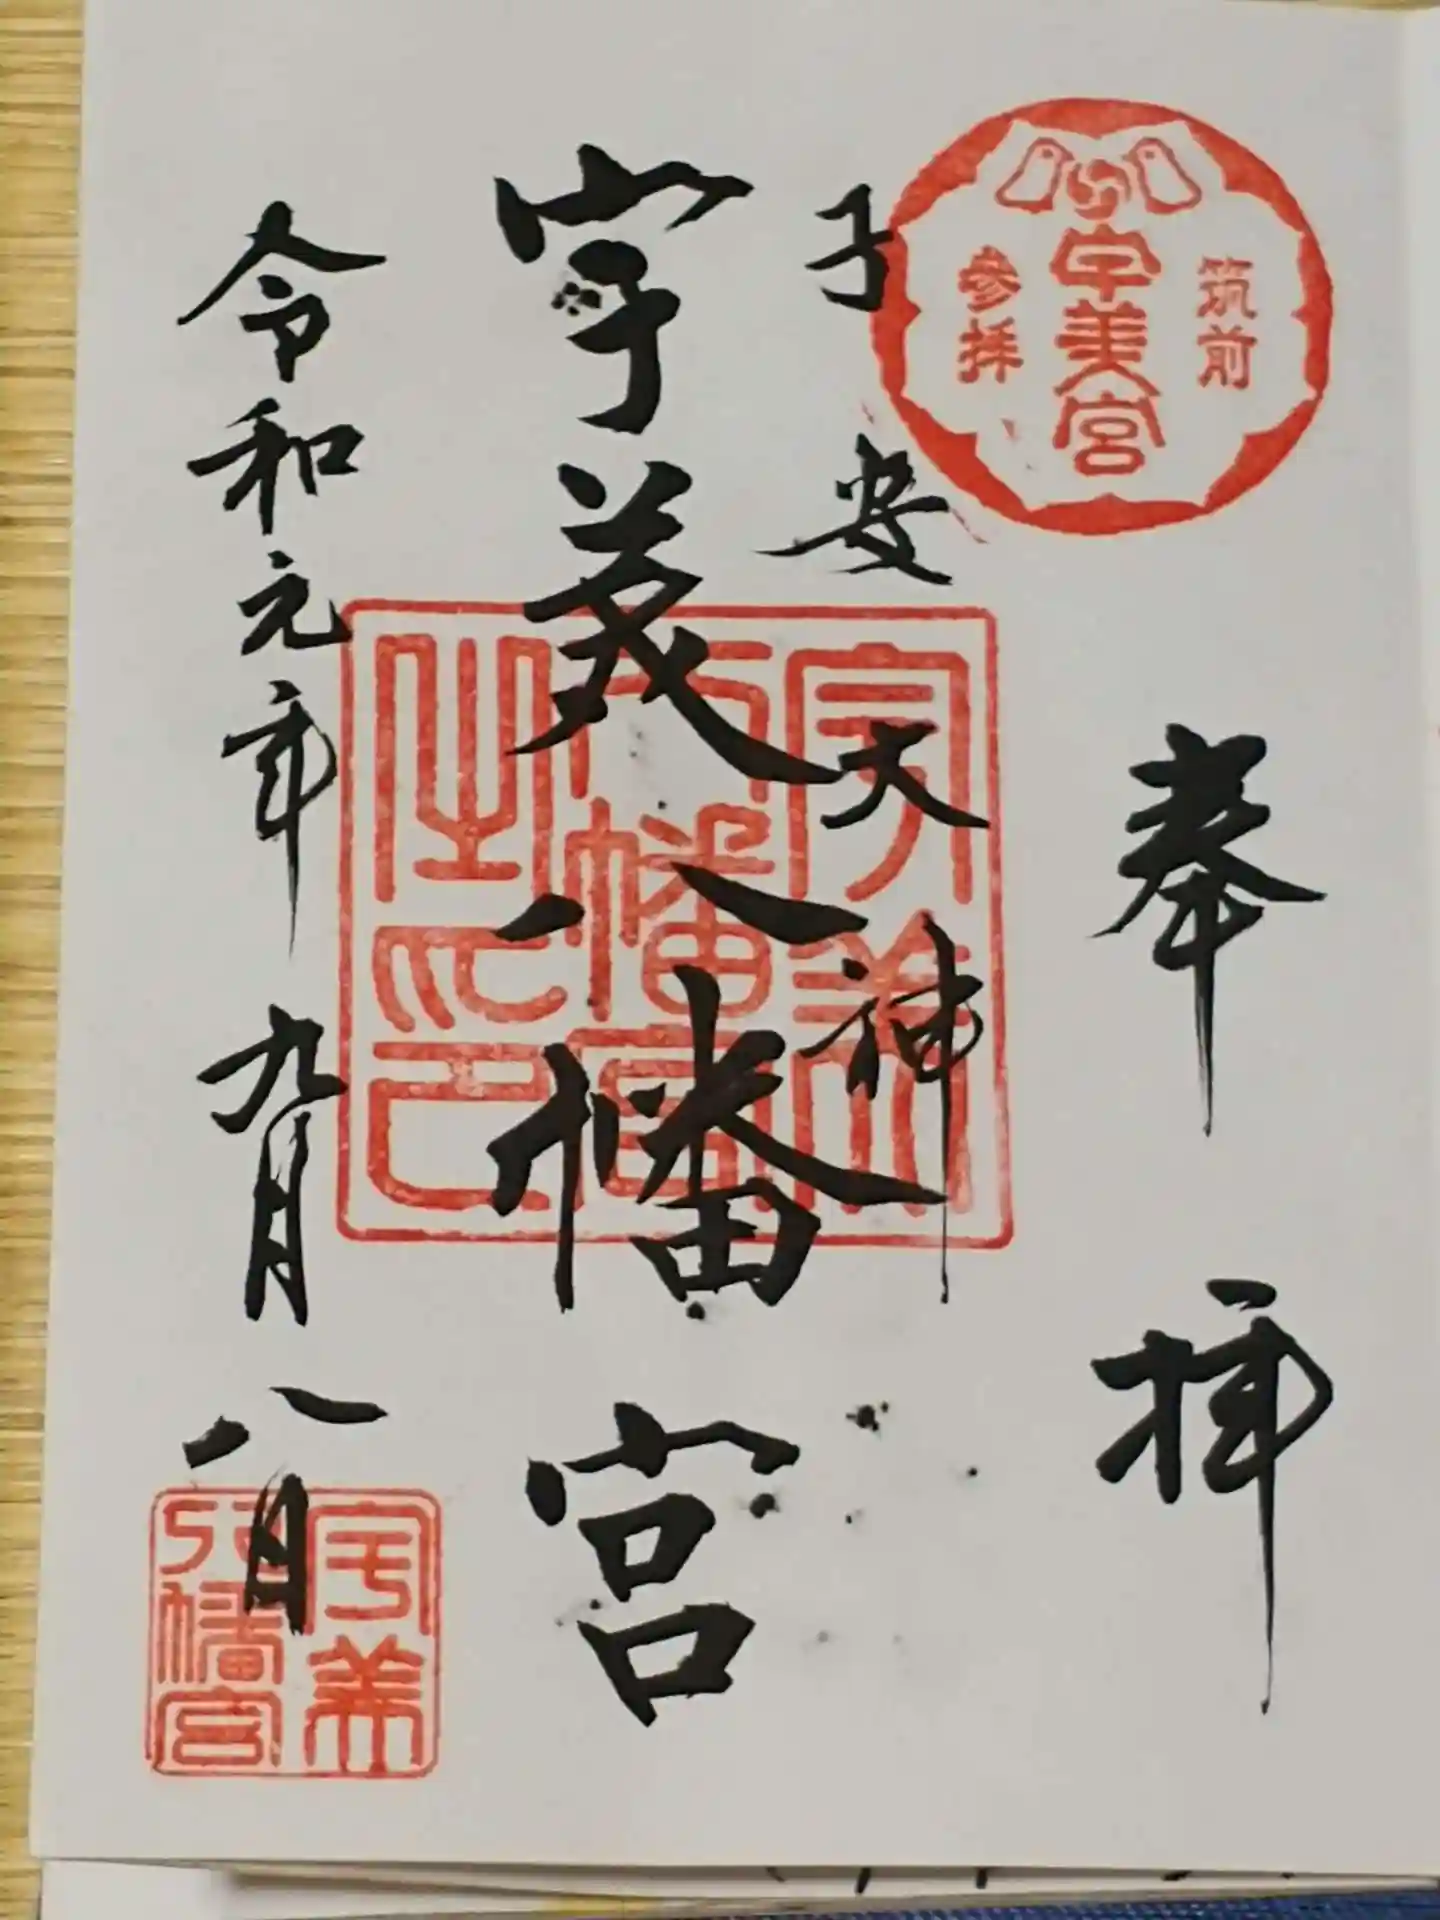 筑前
宇美宮
參拝
奉拝
子安大神
宇美八幡宮
宇美
八幡宮
之印
令和元年九月八日
宇美
八幡宮